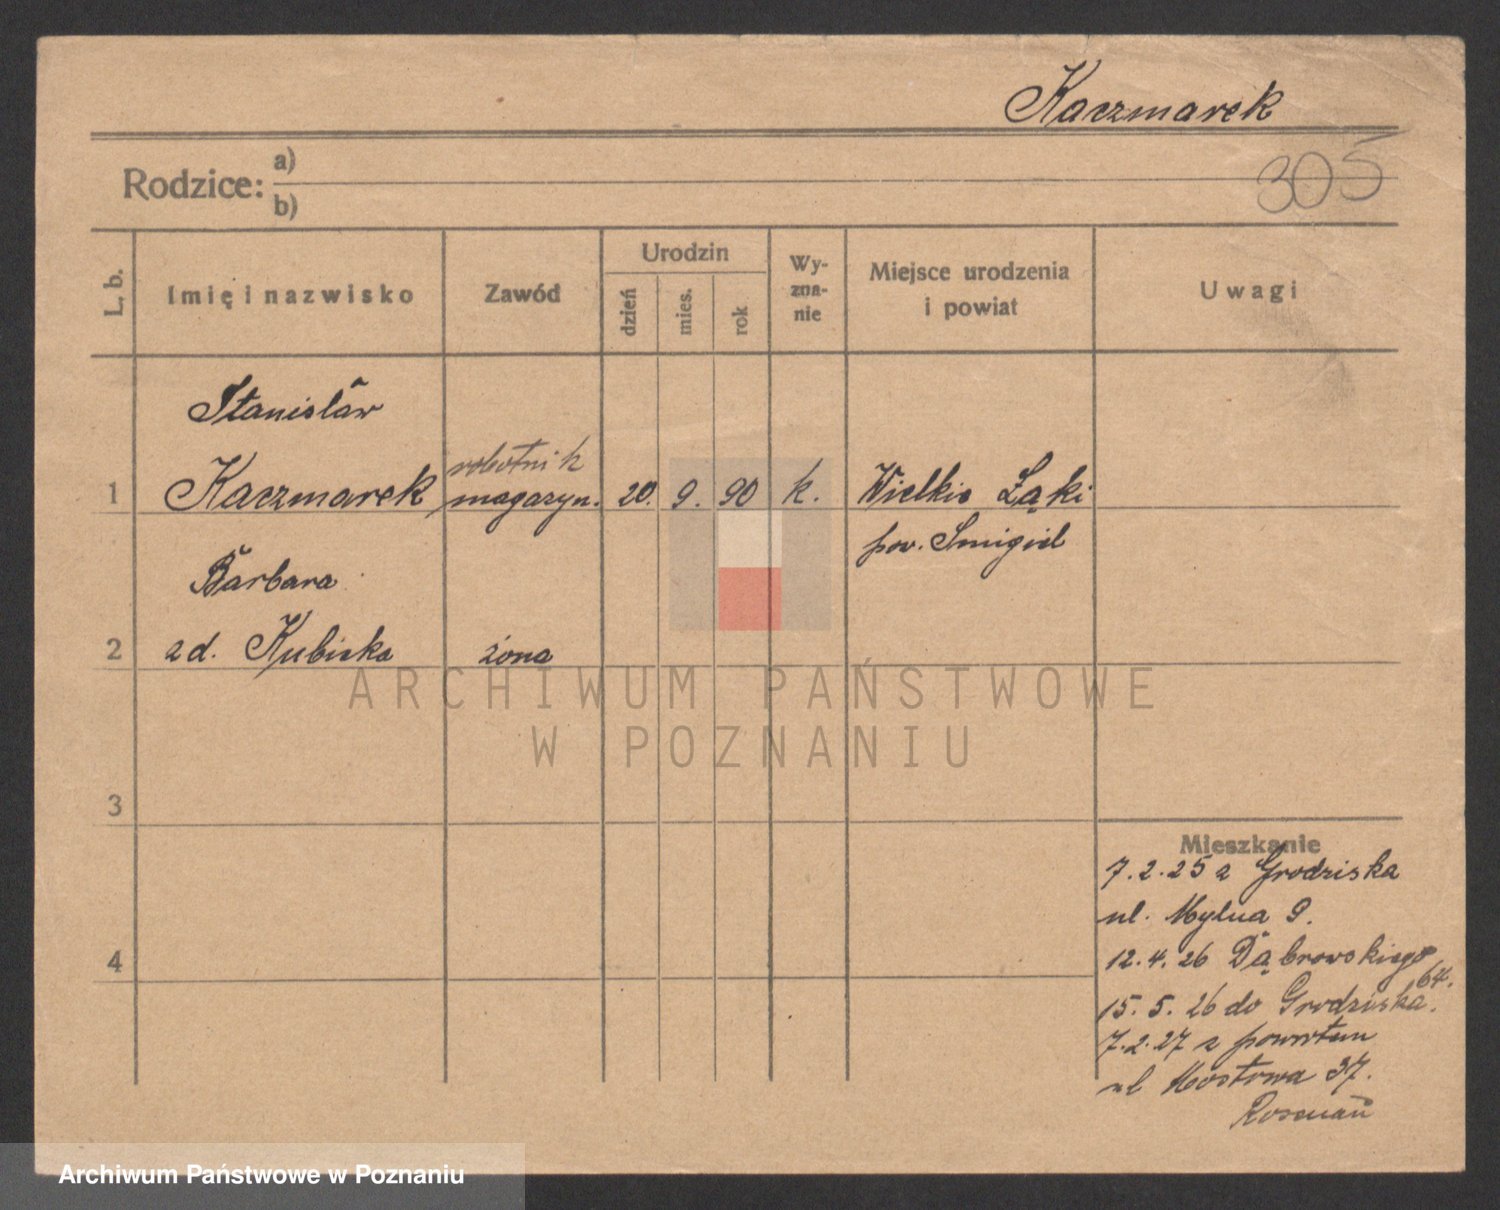 Kaczmarek
305
Rodzice: a)
b)
L. b.
Imię i nazwisko
Zawód
Urodzin
dzień
mies.
rok
Wy-
zna-
nie
Miejsce urodzenia
i powiat
Uwagi
Stanisław
robotnik
1 Kaczmarek magazyn. 20. 9. 90 k. Wielkie Łąki
pow. Smigiel
Barbara
2 zd. Kubicka żona
3
4
Mieszkanie
7.2.25 z Grodziska
ul. Mylna 9.
12.4.26 Dąbrowskiego
64.
15.5.26 do Grodziska.
7.2.27 z powrotem
ul Mostowa 37.
ARCHIWUM PAŃSTWOWE
W POZNANIU
Archiwum Państwowe w Poznaniu